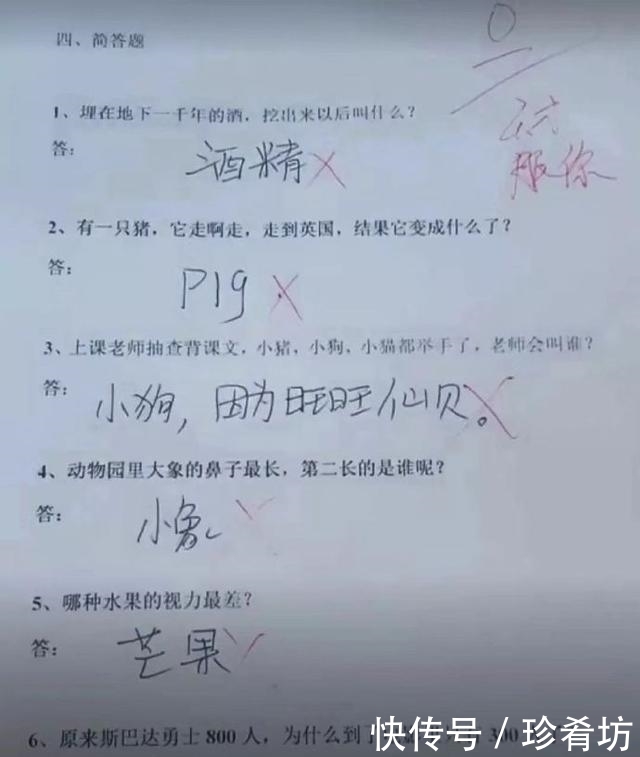 四、简答题
0
1、埋在地下一千年的酒，挖出来以后叫什么？
服你
答：
酒精
2、有一只猪，它走啊走，走到英国，结果它变成什么了？
答：
PIg
3、上课老师抽查背课文，小猪，小狗、小猫都举手了，老师会叫谁？
答：
小狗，因为旺旺仙贝。
4、动物园里大象的鼻子最长，第二长的是谁呢？
答：
小象
5、哪种水果的视力最差？
答：
芒果
6、原来斯巴达勇士 800 人，为什么到了
快传号 / 珍肴坊